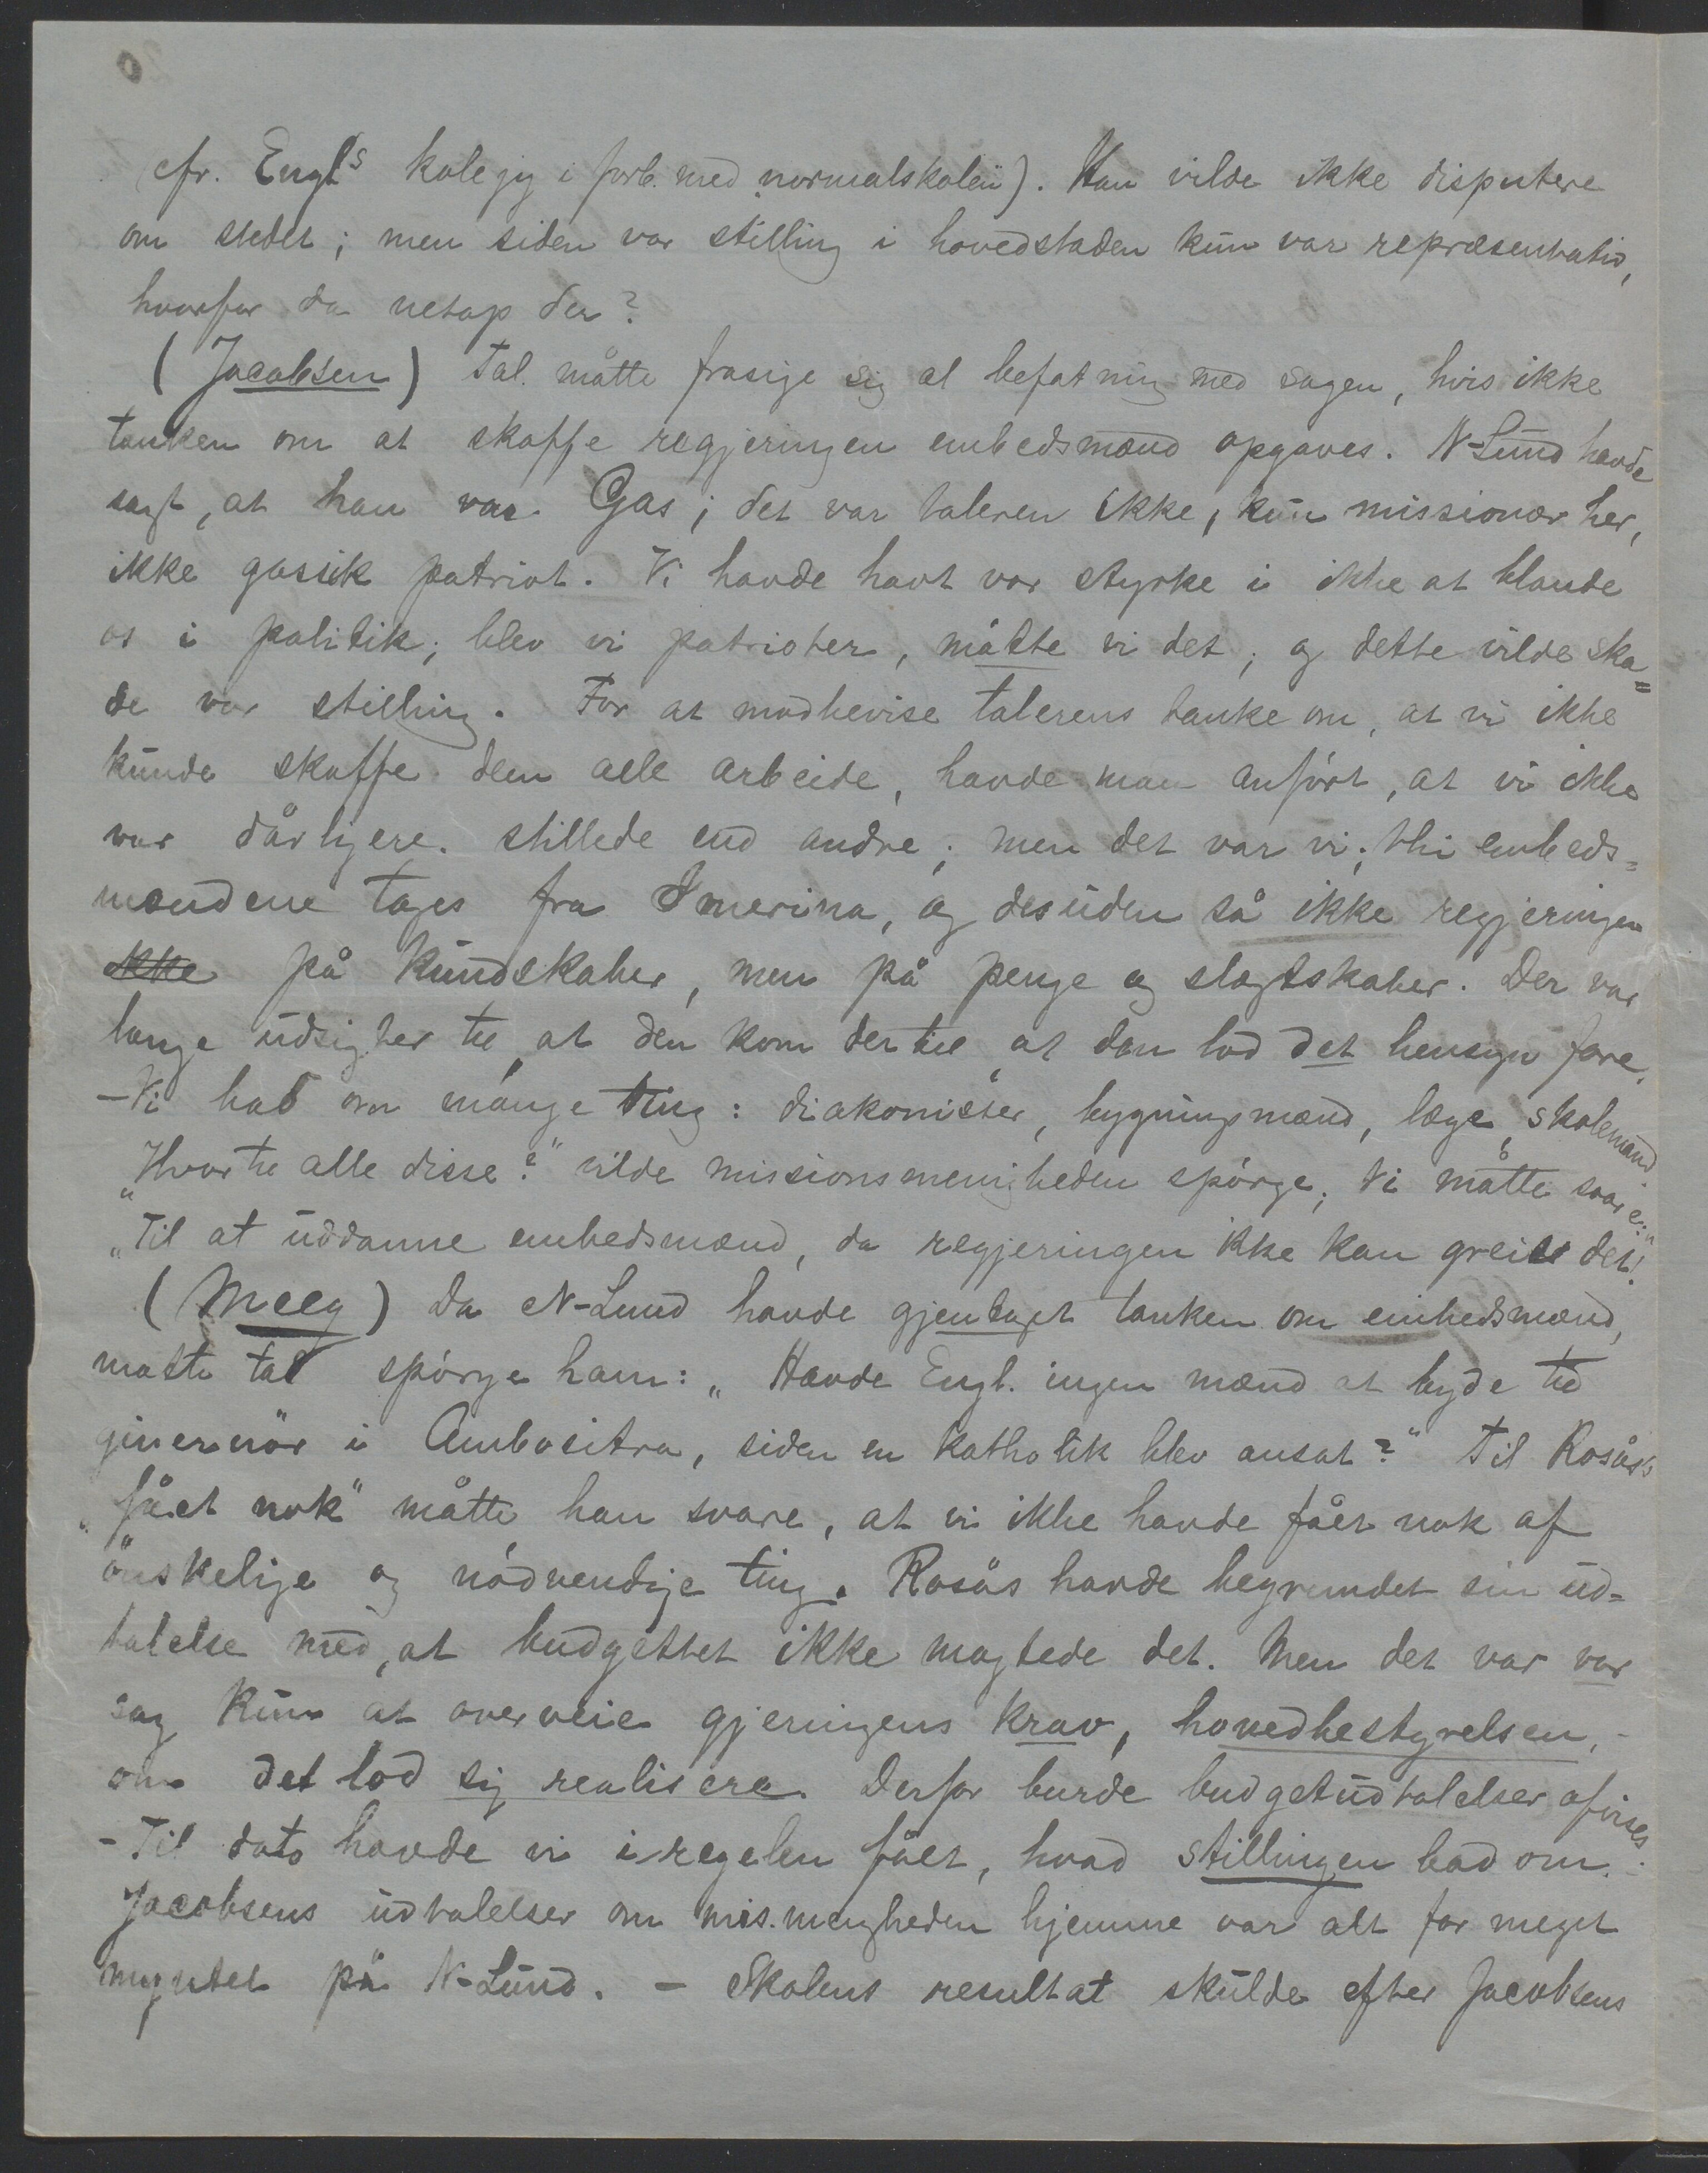 (cfr. Engl.s kolegj i forb. med normalskolen). Han vilde ikke disputere
om stedet; men siden vor stilling i hovedstaden kun var repræsentativ,
hvorfor da netop der?
(Jacobsen) Tal. måtte frasige sig al befatning med sagen, hvis ikke
tanken om at skaffe regjeringen embedsmænd opgaves. N-Lund havde
sagt, at han var Gas; det var taleren ikke, kun missionær her,
ikke gassisk patriot. Vi havde havt vor styrke i ikke at blande
os i politik; blev vi patrioter, måtte vi det; og dette vilde ska=
de vor stilling. For at modbevise talerens tanke om, at vi ikke
kunde skaffe dem alle arbeide, havde man anført, at vi ikke
var dårligere stillede end andre; men det var vi; thi embeds=
mændene tages fra Imerina, og desuden så ikke regjeringen
ikke på kundskaber, men på penge og slægtskaber. Der var
lange udsigter til, at den kom dertil, at den lod det hensyn fare.
- Vi bad om mange ting: diakonisser, bygningsmænd, læge, skolemænd.
"Hvortil alle disse?" vilde missionsmenigheden spørge; Vi måtte svare:
"Til at uddanne embedsmænd, da regjeringen ikke kan greie det!"
(Meeg) Da N-Lund havde gjentaget tanken om embedsmænd,
måtte tal spørge ham: "Havde Engl. ingen mænd at byde til
guvernør i Ambositra, siden en katholik blev ansat?" Til Rosås's
"fået nok" måtte han svare, at vi ikke havde fået nok af
ønskelige og nødvendige ting. Rosås havde begrundet sin ud=
talelse med, at budgettet ikke magtede det. Men det var vor
sag kun at overveie gjerningens krav, hovedbestyrelsen, -
om det lod sig realisere. Derfor burde budgetudtalelser afvises.
- Til dato havde vi i regelen fået, hvad stillingen bad om. -
Jacobsens udtalelser om mis.menigheden hjemme var alt for meget
myntet på N-Lund. - Skolens resultat skulde efter Jacobsens